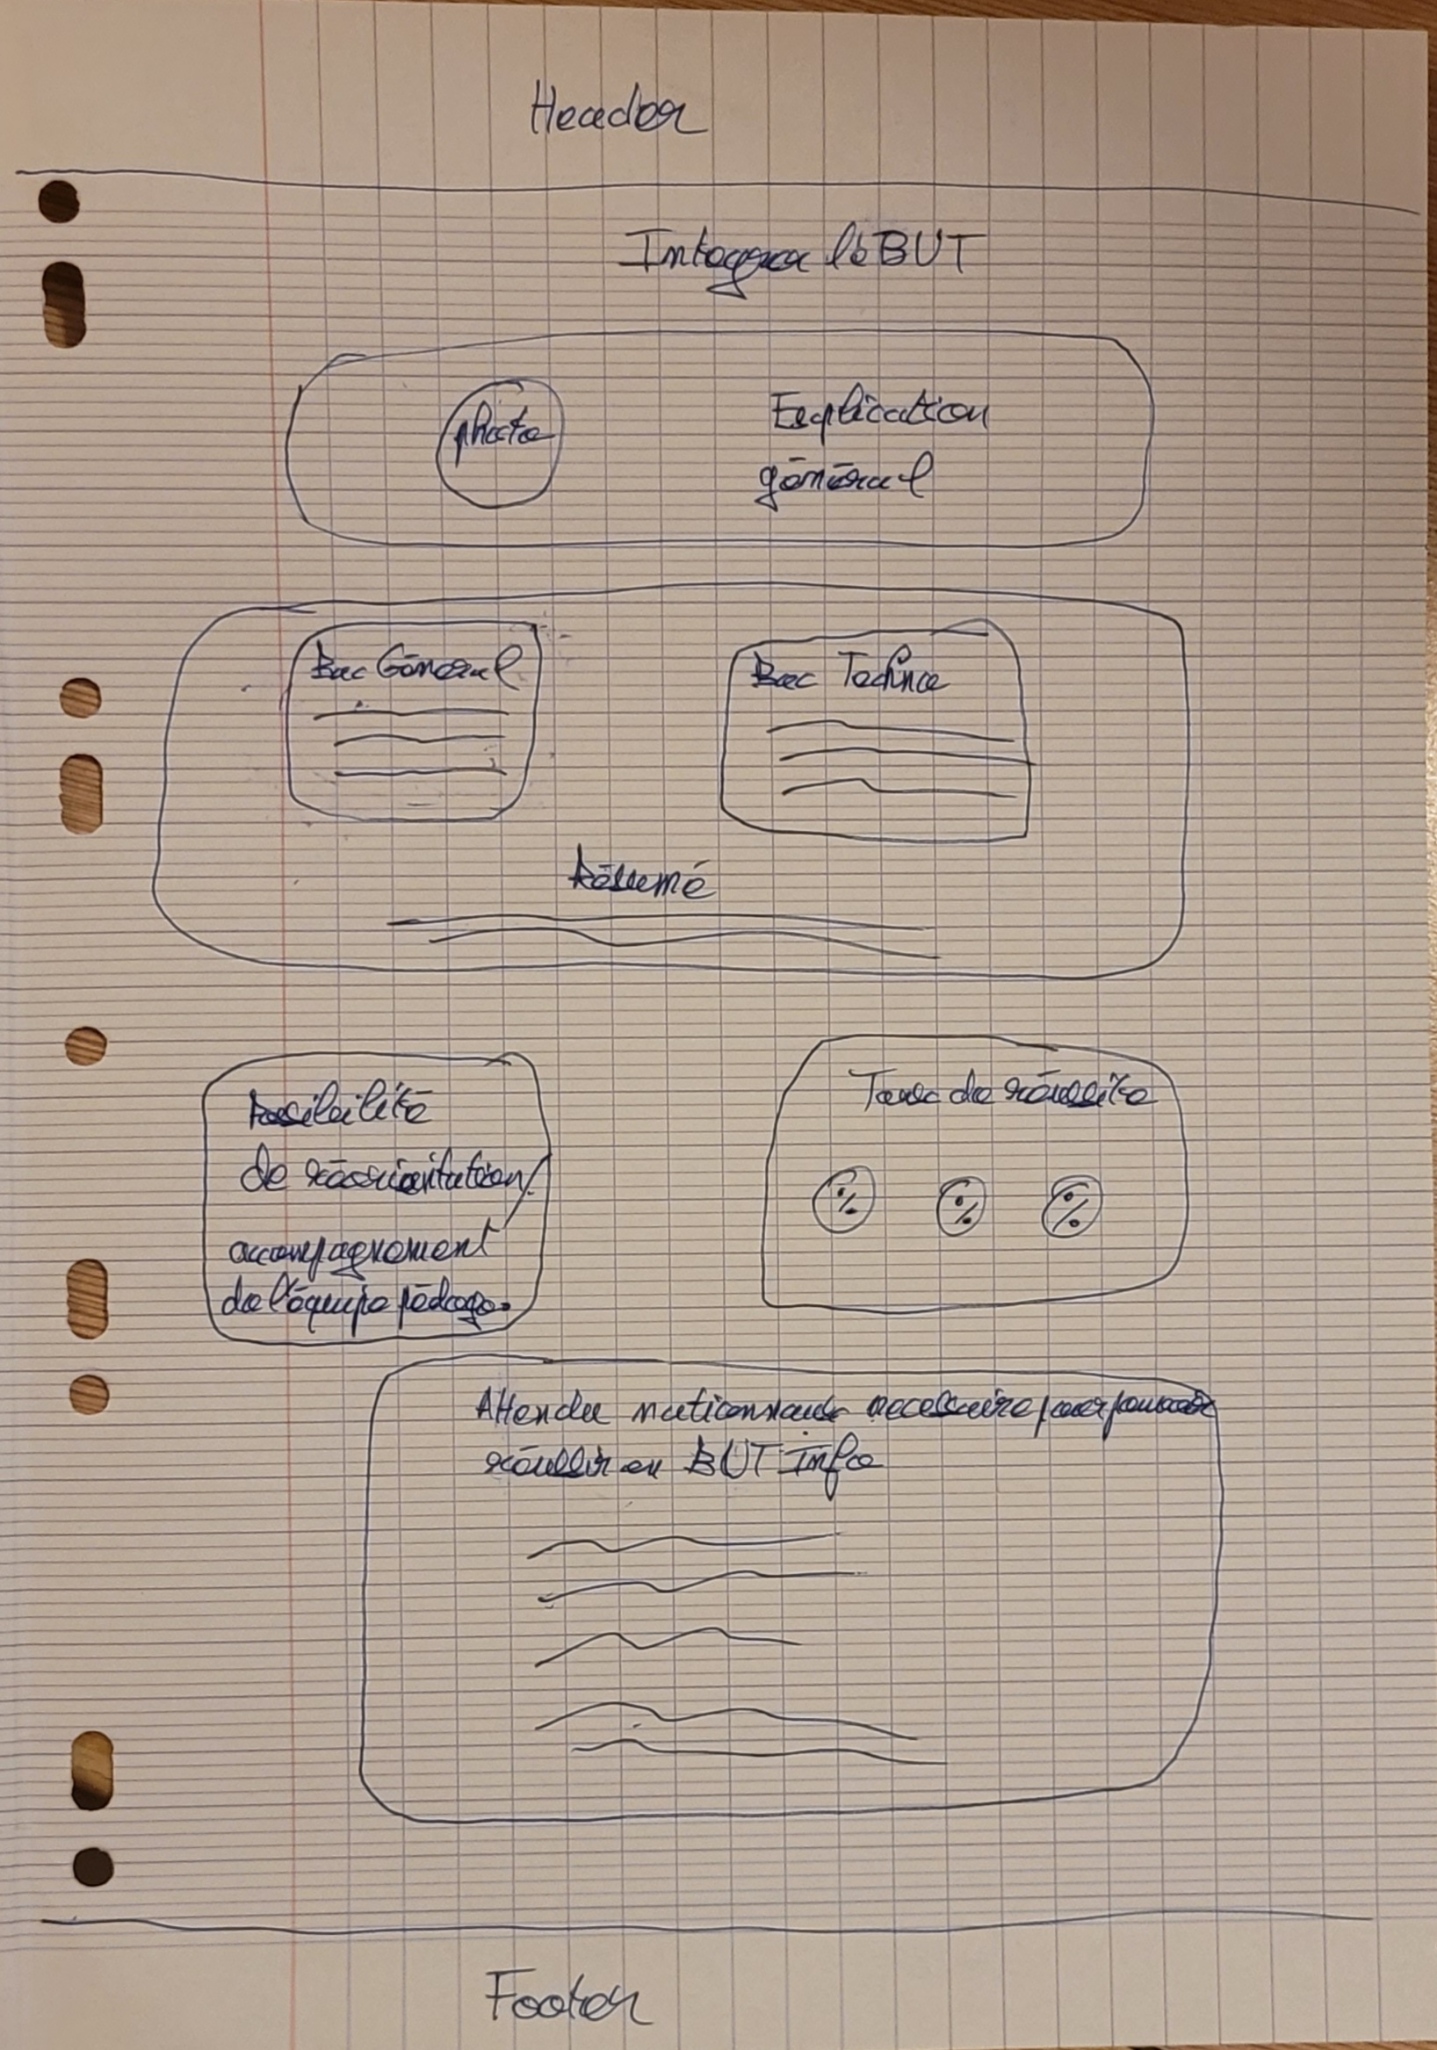 Header
Integrer le BUT
photo
Explication
général
Bac Général
Bac Techno
Résumé
Possibilité
de réorientation/
accompagnement
de l'équipe pédago.
Taux de réussite
% % %
Attendu nationnaux necessaire pour pouvoir
réussir en BUT Info
Footer